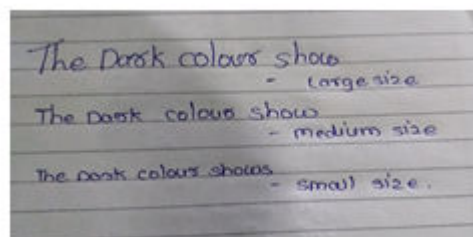 The Dark colour show
- Large size
The Dark colour show
- medium size
The Dark colour shows
- small size.